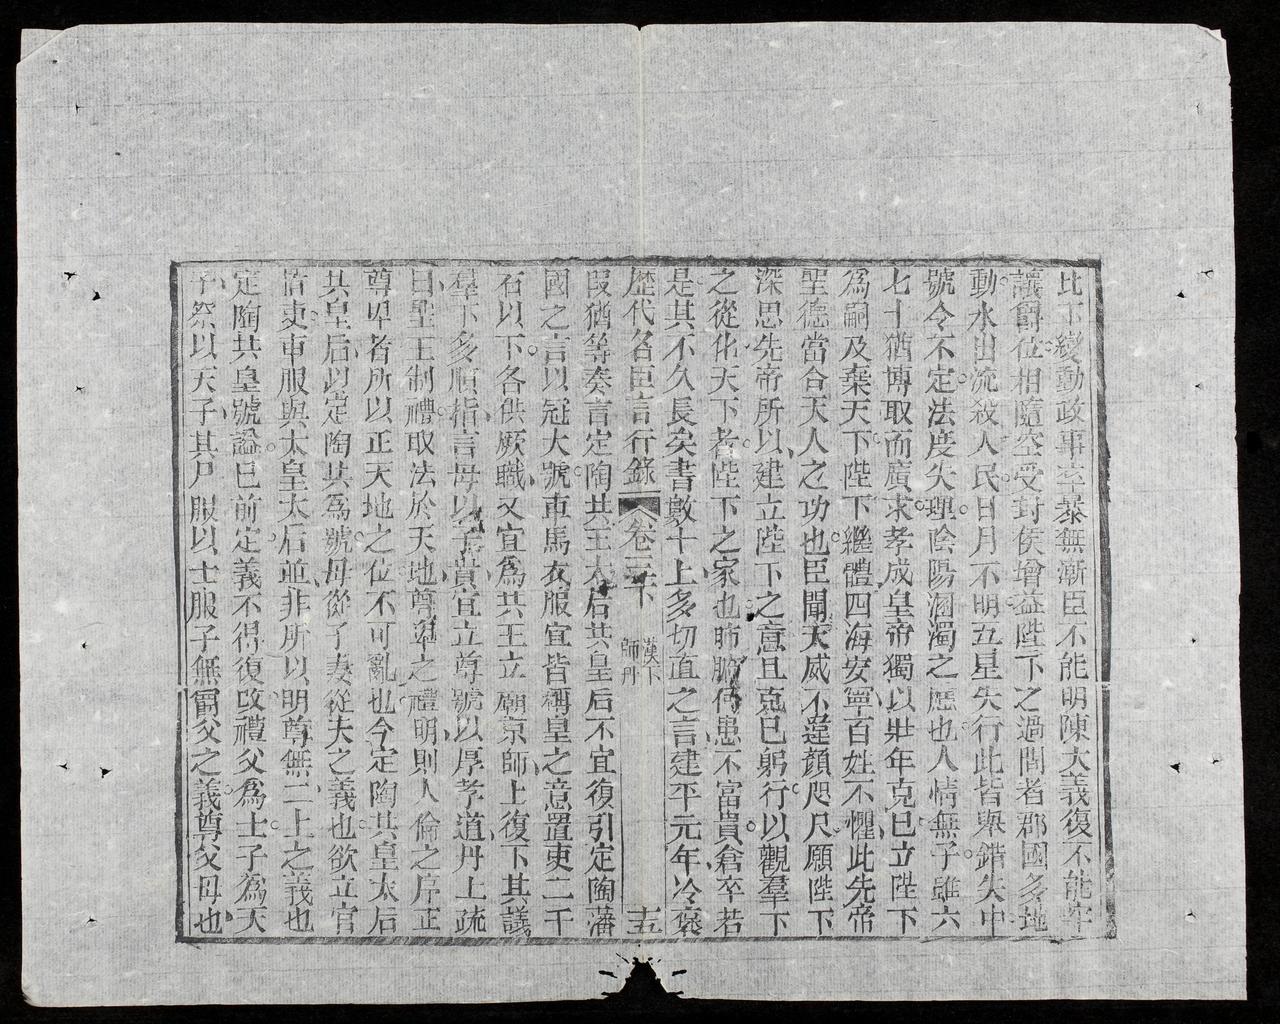 比下變動政事卒暴無漸臣不能明陳大義復不能牢
讓爵位相隨空受封侯增益陛下之過間者郡國多地
動水出流殺人民日月不明五星失行此皆舉錯失中
號令不定法度失理陰陽溷濁之應也人情無子雖六
七十猶博取而廣求孝成皇帝獨以壯年克己立陛下
為嗣及棄天下陛下繼體四海安寧百姓不懼此先帝
聖德當合天人之功也臣聞天威不違顏咫尺願陛下
深思先帝所以建立陛下之意且克己躬行以觀羣下
之從化天下者陛下之家也肺腑何患不富貴倉卒若
是其不久長矣書數十上多切直之言建平元年冷褒
歷代名臣言行錄 卷二下 漢下 師丹 十五
段猶等奏言定陶共王太后共皇后不宜復引定陶藩
國之言以冠大號車馬衣服宜皆稱皇之意置吏二千
石以下各供厥職又宜為共王立廟京師上復下其議
羣下多順指言母以子貴宜立尊號以厚孝道丹上疏
曰聖王制禮取法於天地尊卑之禮明則人倫之序正
尊卑者所以正天地之位不可亂也今定陶共皇太后
共皇后以定陶共為號母從子妻從夫之義也欲立官
置吏車服與太皇太后並非所以明尊無二上之義也
定陶共皇號諡已前定義不得復改禮父為士子為天
子祭以天子其尸服以士服子無爵父之義尊父母也